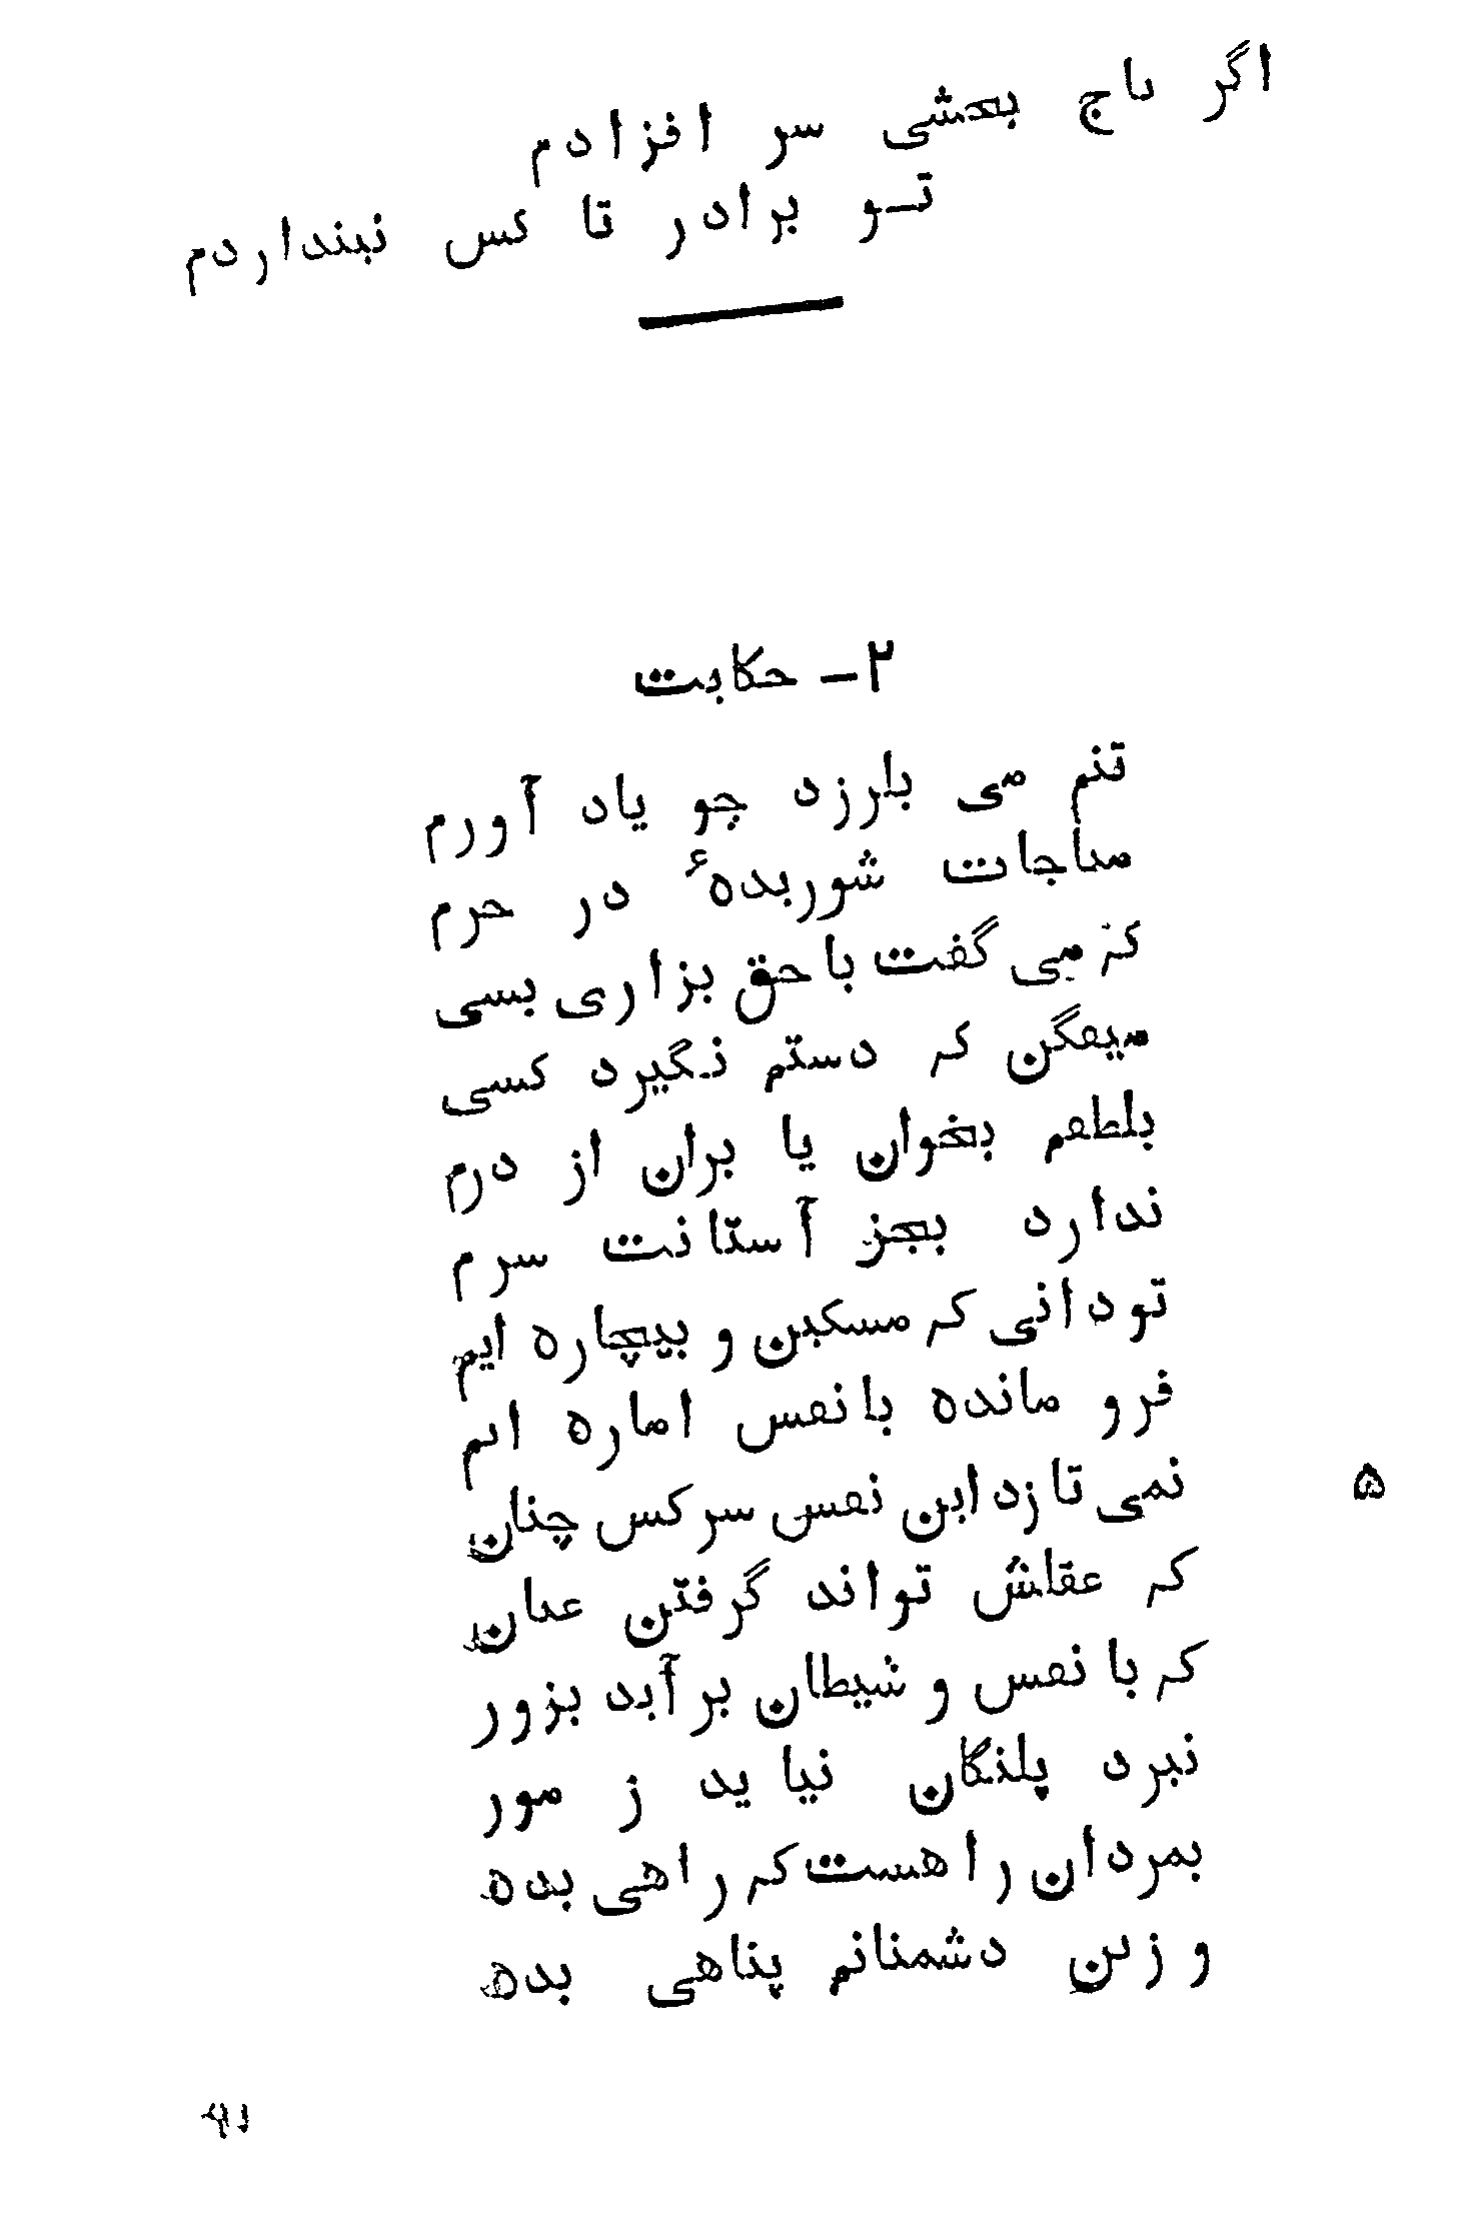 اگر تاج بخشی سر افزادم
تـو برادر تا کس نیندازدم
۲ـ حکایت
تنم می بلرزد چو یاد آورم
مناجات شوریدهٔ در حرم
که می گفت با حق بزاری بسی
میفگن که دستم نگیرد کسی
بلطفم بخوان یا بران از درم
ندارد بجز آستانت سرم
تو دانی که مسکین و بیچاره ایم
فرو مانده با نفس اماره ایم
نمی تازد این نفس سرکس چنان
۵
که عقلش تواند گرفتن عنان
که با نفس و شیطان برآید بزور
نبرد پلنگان نیاید ز مور
بمردان راهست که راهی بده
وزین دشمنانم پناهی بده